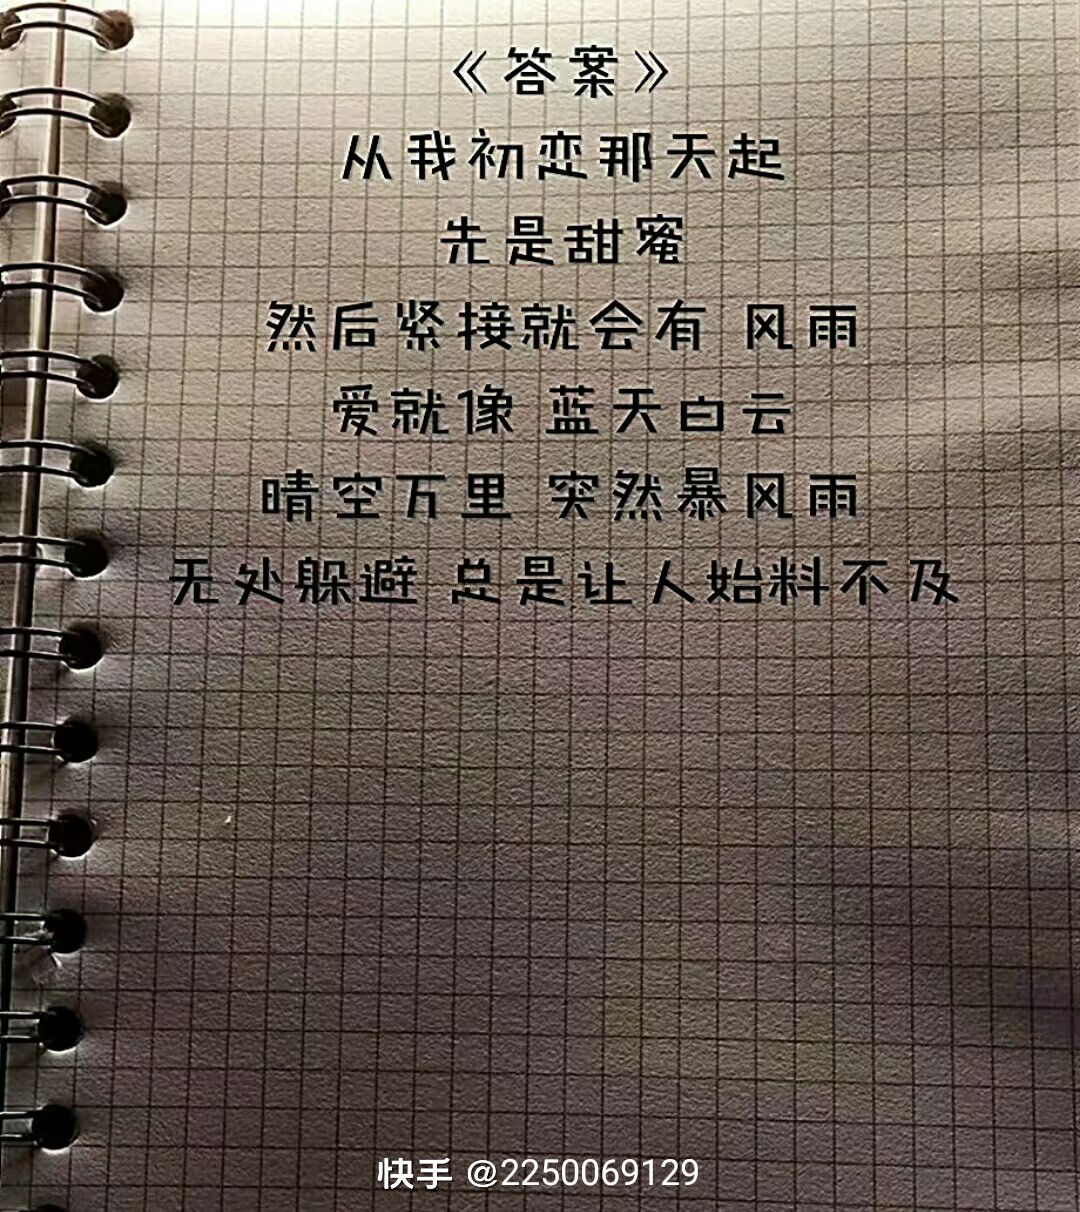 《答案》
从我初恋那天起
先是甜蜜
然后紧接就会有 风雨
爱就像 蓝天白云
晴空万里 突然暴风雨
无处躲避 总是让人始料不及
快手 @2250069129